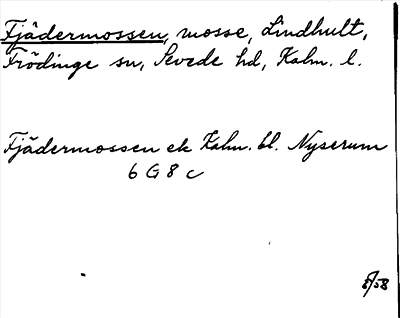 Fjädermossen, mosse, Lindhult,
Frödinge sn, Sevede hd, Kalm. l.
Fjädermossen ek Kalm. bl. Nyserum
6 G 8 c
8/58